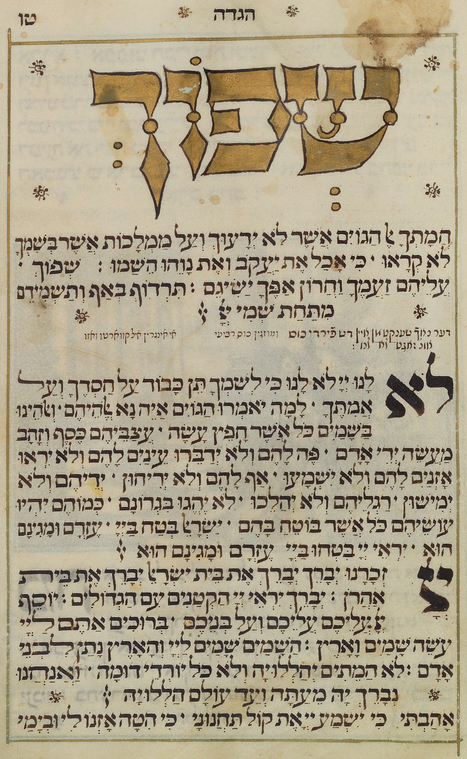 הגדה
טו
שפוך
חמתך אל הגוים אשר לא ידעוך ועל ממלכות אשר בשמך
לא קראו · כי אכל את יעקב ואת נוהו השמו : שפוך ·
עליהם זעמך וחרון אפך ישיגם : תרדוף באף ותשמידם
מתחת שמי
דער נוך שענקט מן פירדי כוס ומוזגין כוס רביעי איל קווארטו וואזו
לא לנו יי לא לנו כי לשמך תן כבוד על חסדך ועל
אמתך · למה יאמרו הגוים איה נא אלהיהם · ואלהינו
בשמים כל אשר חפץ עשה · עצביהם כסף וזהב
מעשה ידי אדם · פה להם ולא ידברו עינים להם ולא יראו
אזנים להם ולא ישמעו · אף להם ולא יריחון · ידיהם ולא
ימישון · רגליהם ולא יהלכו · לא יהגו בגרונם · כמוהם יהיו
עושיהם כל אשר בוטח בהם · ישראל בטח ביי עזרם ומגינם
הוא · יראי יי בטחו ביי עזרם ומגינם הוא
יי זכרנו יברך יברך את בית ישראל יברך את בית
אהרן : יברך יראי יי הקטנים עם הגדולים : יוסף
עליכם עליכם ועל בניכם · ברוכים אתם ליי
עשה שמים וארץ : השמים שמים ליי והארץ נתן לבני
אדם : לא המתים יהללויה ולא כל יורדי דומה · ואנחנו
נברך יה מעתה ועד עולם הללויה
אהבתי כי ישמע יי את קול תחנוני · כי הטה אזנו לי ובימי